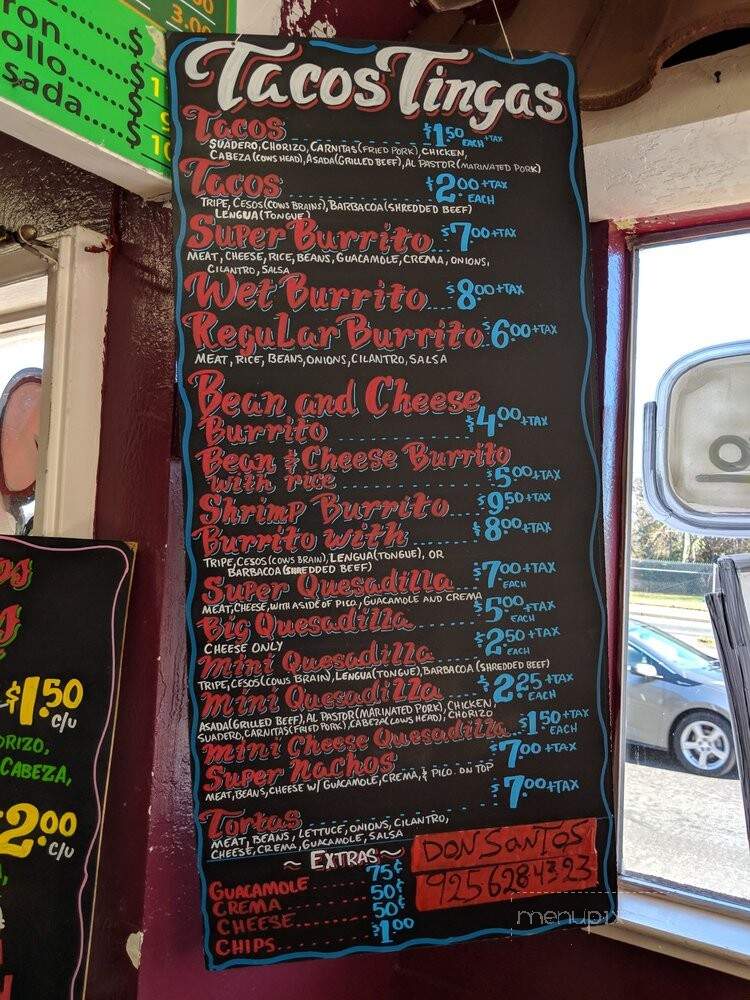 ron.....$
ollo....$
sada....$
3.00
Tacos Tingas
Tacos $1.50 EACH +TAX
SUADERO, CHORIZO, CARNITAS (FRIED PORK), CHICKEN,
CABEZA (COWS HEAD), ASADA (GRILLED BEEF), AL PASTOR (MARINATED PORK)
Tacos $2.00 +TAX EACH
TRIPE, CESOS (COWS BRAINS), BARBACOA (SHREDDED BEEF)
LENGUA (TONGUE)
Super Burrito $7.00 +TAX
MEAT, CHEESE, RICE, BEANS, GUACAMOLE, CREMA, ONIONS,
CILANTRO, SALSA
Wet Burrito $8.00 +TAX
Regular Burrito $6.00 +TAX
MEAT, RICE, BEANS, ONIONS, CILANTRO, SALSA
Bean and Cheese
Burrito $4.00 +TAX
Bean & Cheese Burrito
with rice $5.00 +TAX
Shrimp Burrito $9.50 +TAX
Burrito with $8.00 +TAX
TRIPE, CESOS (COWS BRAIN), LENGUA (TONGUE), OR
BARBACOA (SHREDDED BEEF)
Super Quesadilla $7.00 +TAX EACH
MEAT, CHEESE, WITH A SIDE OF PICO, GUACAMOLE AND CREMA
Big Quesadilla $5.00 +TAX EACH
CHEESE ONLY
Mini Quesadilla $2.50 +TAX EACH
TRIPE, CESOS (COWS BRAIN), LENGUA (TONGUE), BARBACOA (SHREDDED BEEF)
Mini Quesadilla $2.25 +TAX EACH
ASADA (GRILLED BEEF), AL PASTOR (MARINATED PORK), CHICKEN,
SUADERO, CARNITAS (FRIED PORK), CABEZA (COWS HEAD), CHORIZO
Mini Cheese Quesadilla $1.50 +TAX EACH
Super Nachos $7.00 +TAX
MEAT, BEANS, CHEESE W/ GUACAMOLE, CREMA, & PICO ON TOP
Tortas $7.00 +TAX
MEAT, BEANS, LETTUCE, ONIONS, CILANTRO,
CHEESE, CREMA, GUACAMOLE, SALSA
~ EXTRAS ~
GUACAMOLE 75¢
CREMA 50¢
CHEESE 50¢
CHIPS $1.00
DON SANTOS
925 628 4323
$1.50 c/u
ORIZO,
CABEZA,
2.00 c/u
menupix